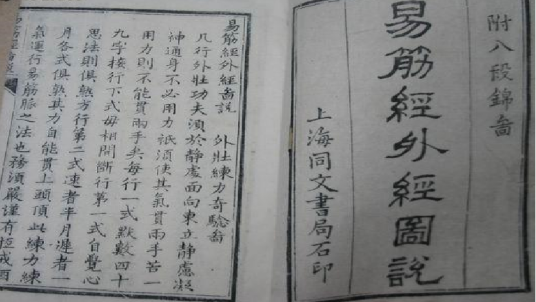 附八段錦啚
易筋經外經圖說
上海同文書局石印
易筋經外經啚說 外壯練力奇驗啚
凡行外壯功夫須於靜處面向東立靜慮凝
神通身不必用力祇須使其氣貫兩手若一
用力則不能貫兩手矣每行一式默數四十
九字挨行下式毋相間斷行第一式自覺心
思法則俱熟方行第二式速者半月遲者一
月各式俱熟其力自能貫上頭頂此練力練
氣運行易筋脈之法也務須嚴謹有恆戒